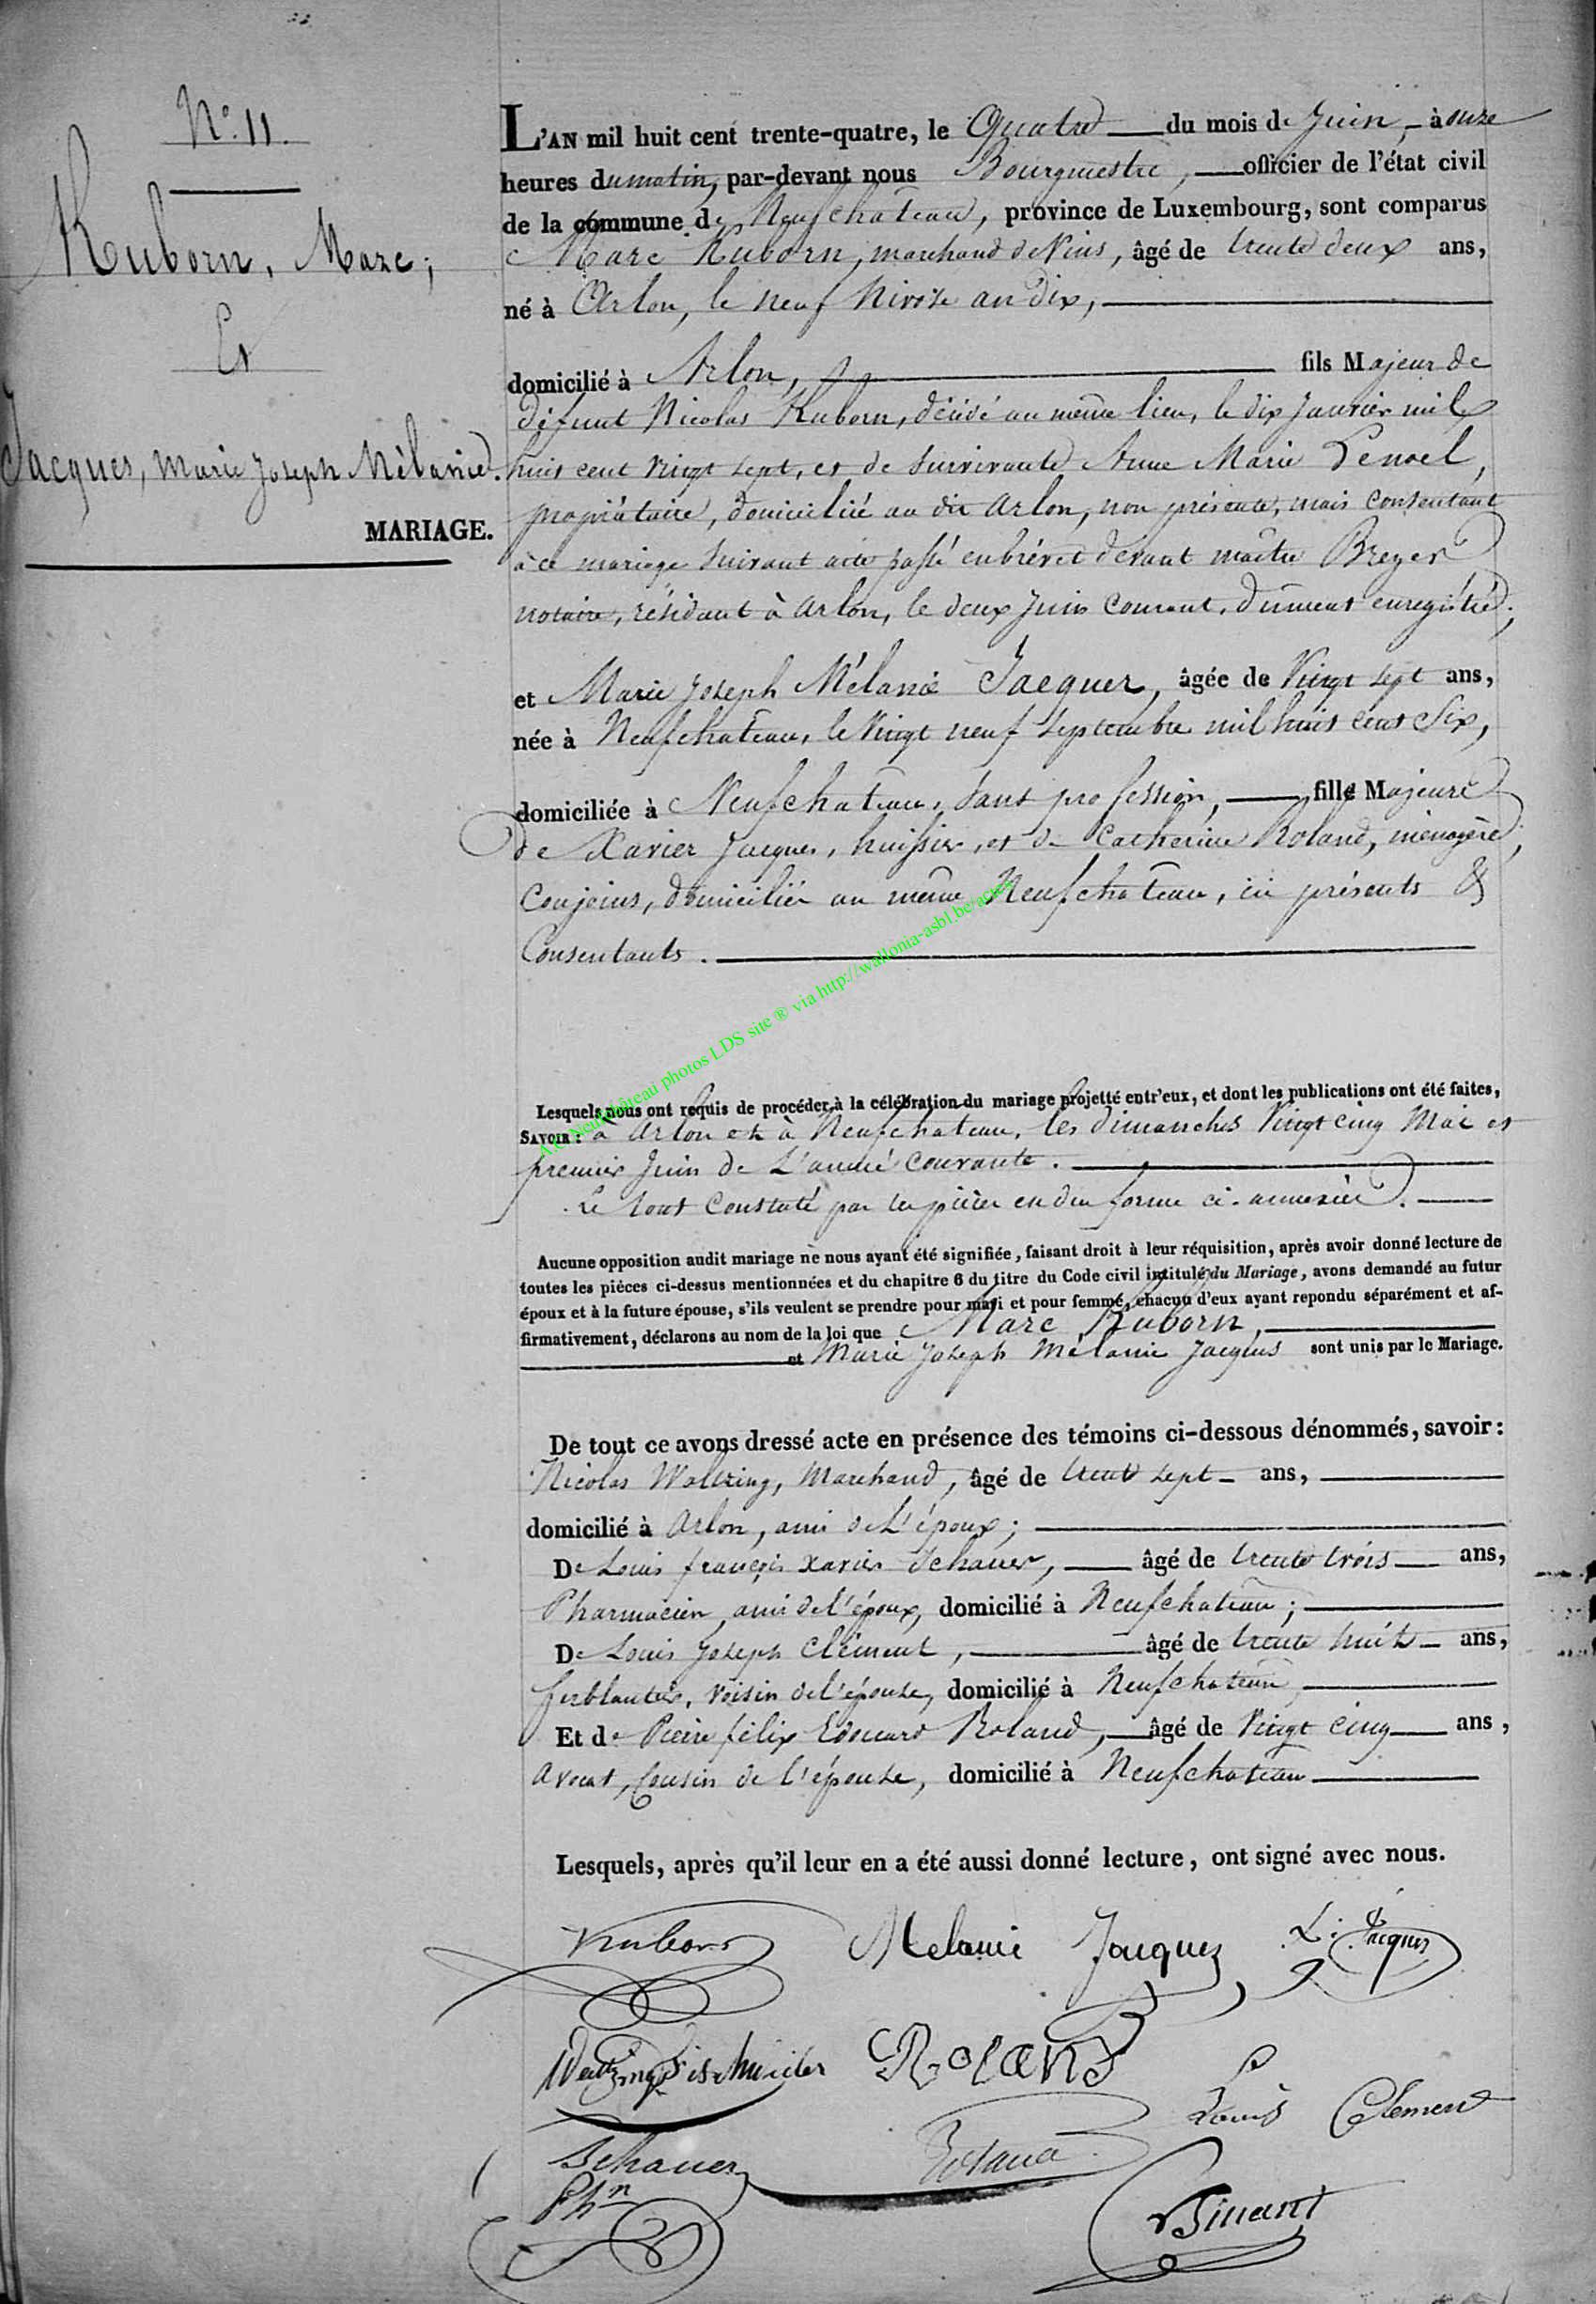 N.° 11.
Kuborn, Marc;
Et
Jacques, Marie Joseph Mélanie.
MARIAGE.
L'AN mil huit cent trente-quatre, le Quatre du mois de Juin, à onze
heures du matin, par-devant nous Bourgmestre, officier de l'état civil
de la commune de Neufchateau, province de Luxembourg, sont comparus
Marc Kuborn, marchand de Vins, âgé de trente deux ans,
né à Arlon, le neuf Nivose an dix,
domicilié à Arlon, fils Majeur de
défunt Nicolas Kuborn, décédé au même lieu, le dix Janvier mil
huit cent vingt sept, et de survivante Anne Marie Lenoel,
propriétaire, domiciliée au dit Arlon, non présente, mais consentant
à ce mariage suivant acte passé en brévet devant maître
notaire, résidant à Arlon, le deux Juin courant, dûment enregistré;
et Marie Joseph Mélanie Jacques, âgée de Vingt sept ans,
née à Neufchateau, le Vingt neuf septembre mil huit cent Six,
domiciliée à Neufchateau, sans profession, fille Majeure
de Xavier Jacques, huissier, et de Catherine Roland, ménagère,
Conjoins, domiciliés au même Neufchateau, ici présents &
Consentants.
A.C. Neufchâteau photos LDS site ® via http://wallonia-asbl.be/actes
Lesquels nous ont requis de procéder à la célébration du mariage projetté entr'eux, et dont les publications ont été faites,
SAVOIR: à Arlon et à Neufchateau, les dimanches Vingt cinq Mai et
premier Juin de L'année courante.
Le tout constaté par les pièces en due forme ci-annexées.
Aucune opposition audit mariage ne nous ayant été signifiée, faisant droit à leur réquisition, après avoir donné lecture de
toutes les pièces ci-dessus mentionnées et du chapitre 6 du titre du Code civil intitulé du Mariage, avons demandé au futur
époux et à la future épouse, s'ils veulent se prendre pour mari et pour femme, chacun d'eux ayant repondu séparément et af-
firmativement, déclarons au nom de la loi que Marc Kuborn,
et Marie Joseph Mélanie Jacques sont unis par le Mariage.
De tout ce avons dressé acte en présence des témoins ci-dessous dénommés, savoir:
Nicolas Waltzing, Marchand, âgé de trente sept ans,
domicilié à Arlon, ami de L'époux;
De Louis françois Xavier Schauer, âgé de trente trois ans,
Pharmacien, ami de l'époux, domicilié à Neufchateau;
De Louis Joseph Clément, âgé de trente huit ans,
ferblantier, voisin de l'épouse, domicilié à Neufchateau,
Et de Pierre félix Edouard Roland, âgé de Vingt cinq ans,
Avocat, Cousin de l'épouse, domicilié à Neufchateau
Lesquels, après qu'il leur en a été aussi donné lecture, ont signé avec nous.
Kuborn Mélanie Jacques Jacques
Roland
Louis Clément
Schauer Roland
Phn